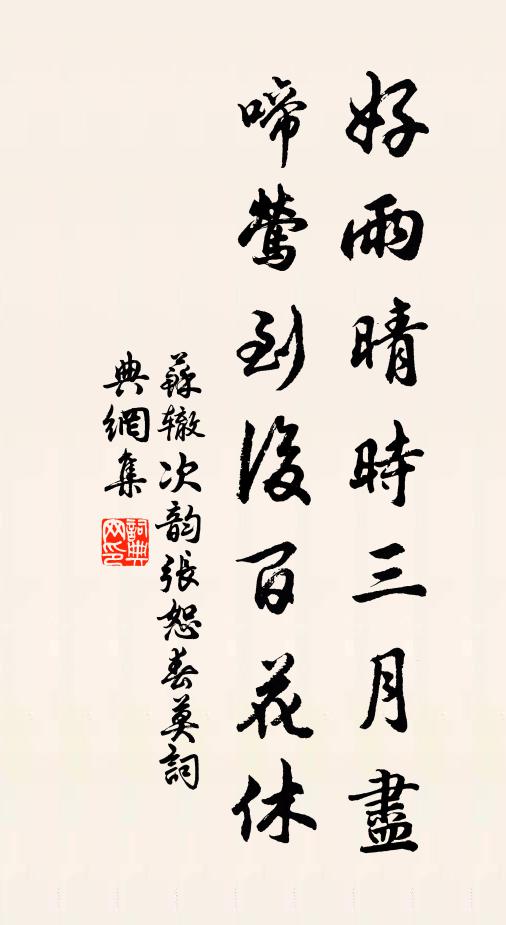 好雨晴時三月盡
啼鶯到後百花休
蘇辙次韵張恕春莫詞
典網集
詞典网印